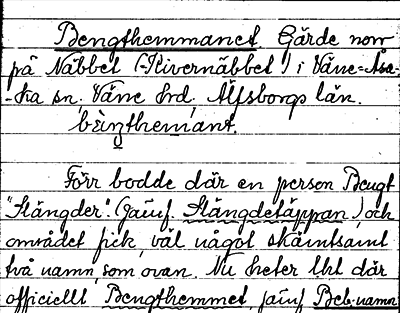 Bengthemmanet. Gärde norr
på Näbbet (-Kivernäbbet) i Väne-Åsa-
-ka sn, Väne hrd, Älfsborgs län.
bèngthemant.
Förr bodde där en person Bengt
"Slängder". (jämf. Slängdetäppan) och
området fick väl något skämtsamt
två namn, som ovan. Nu heter lht där
officiellt Bengthemmet, jämf Beb.namn